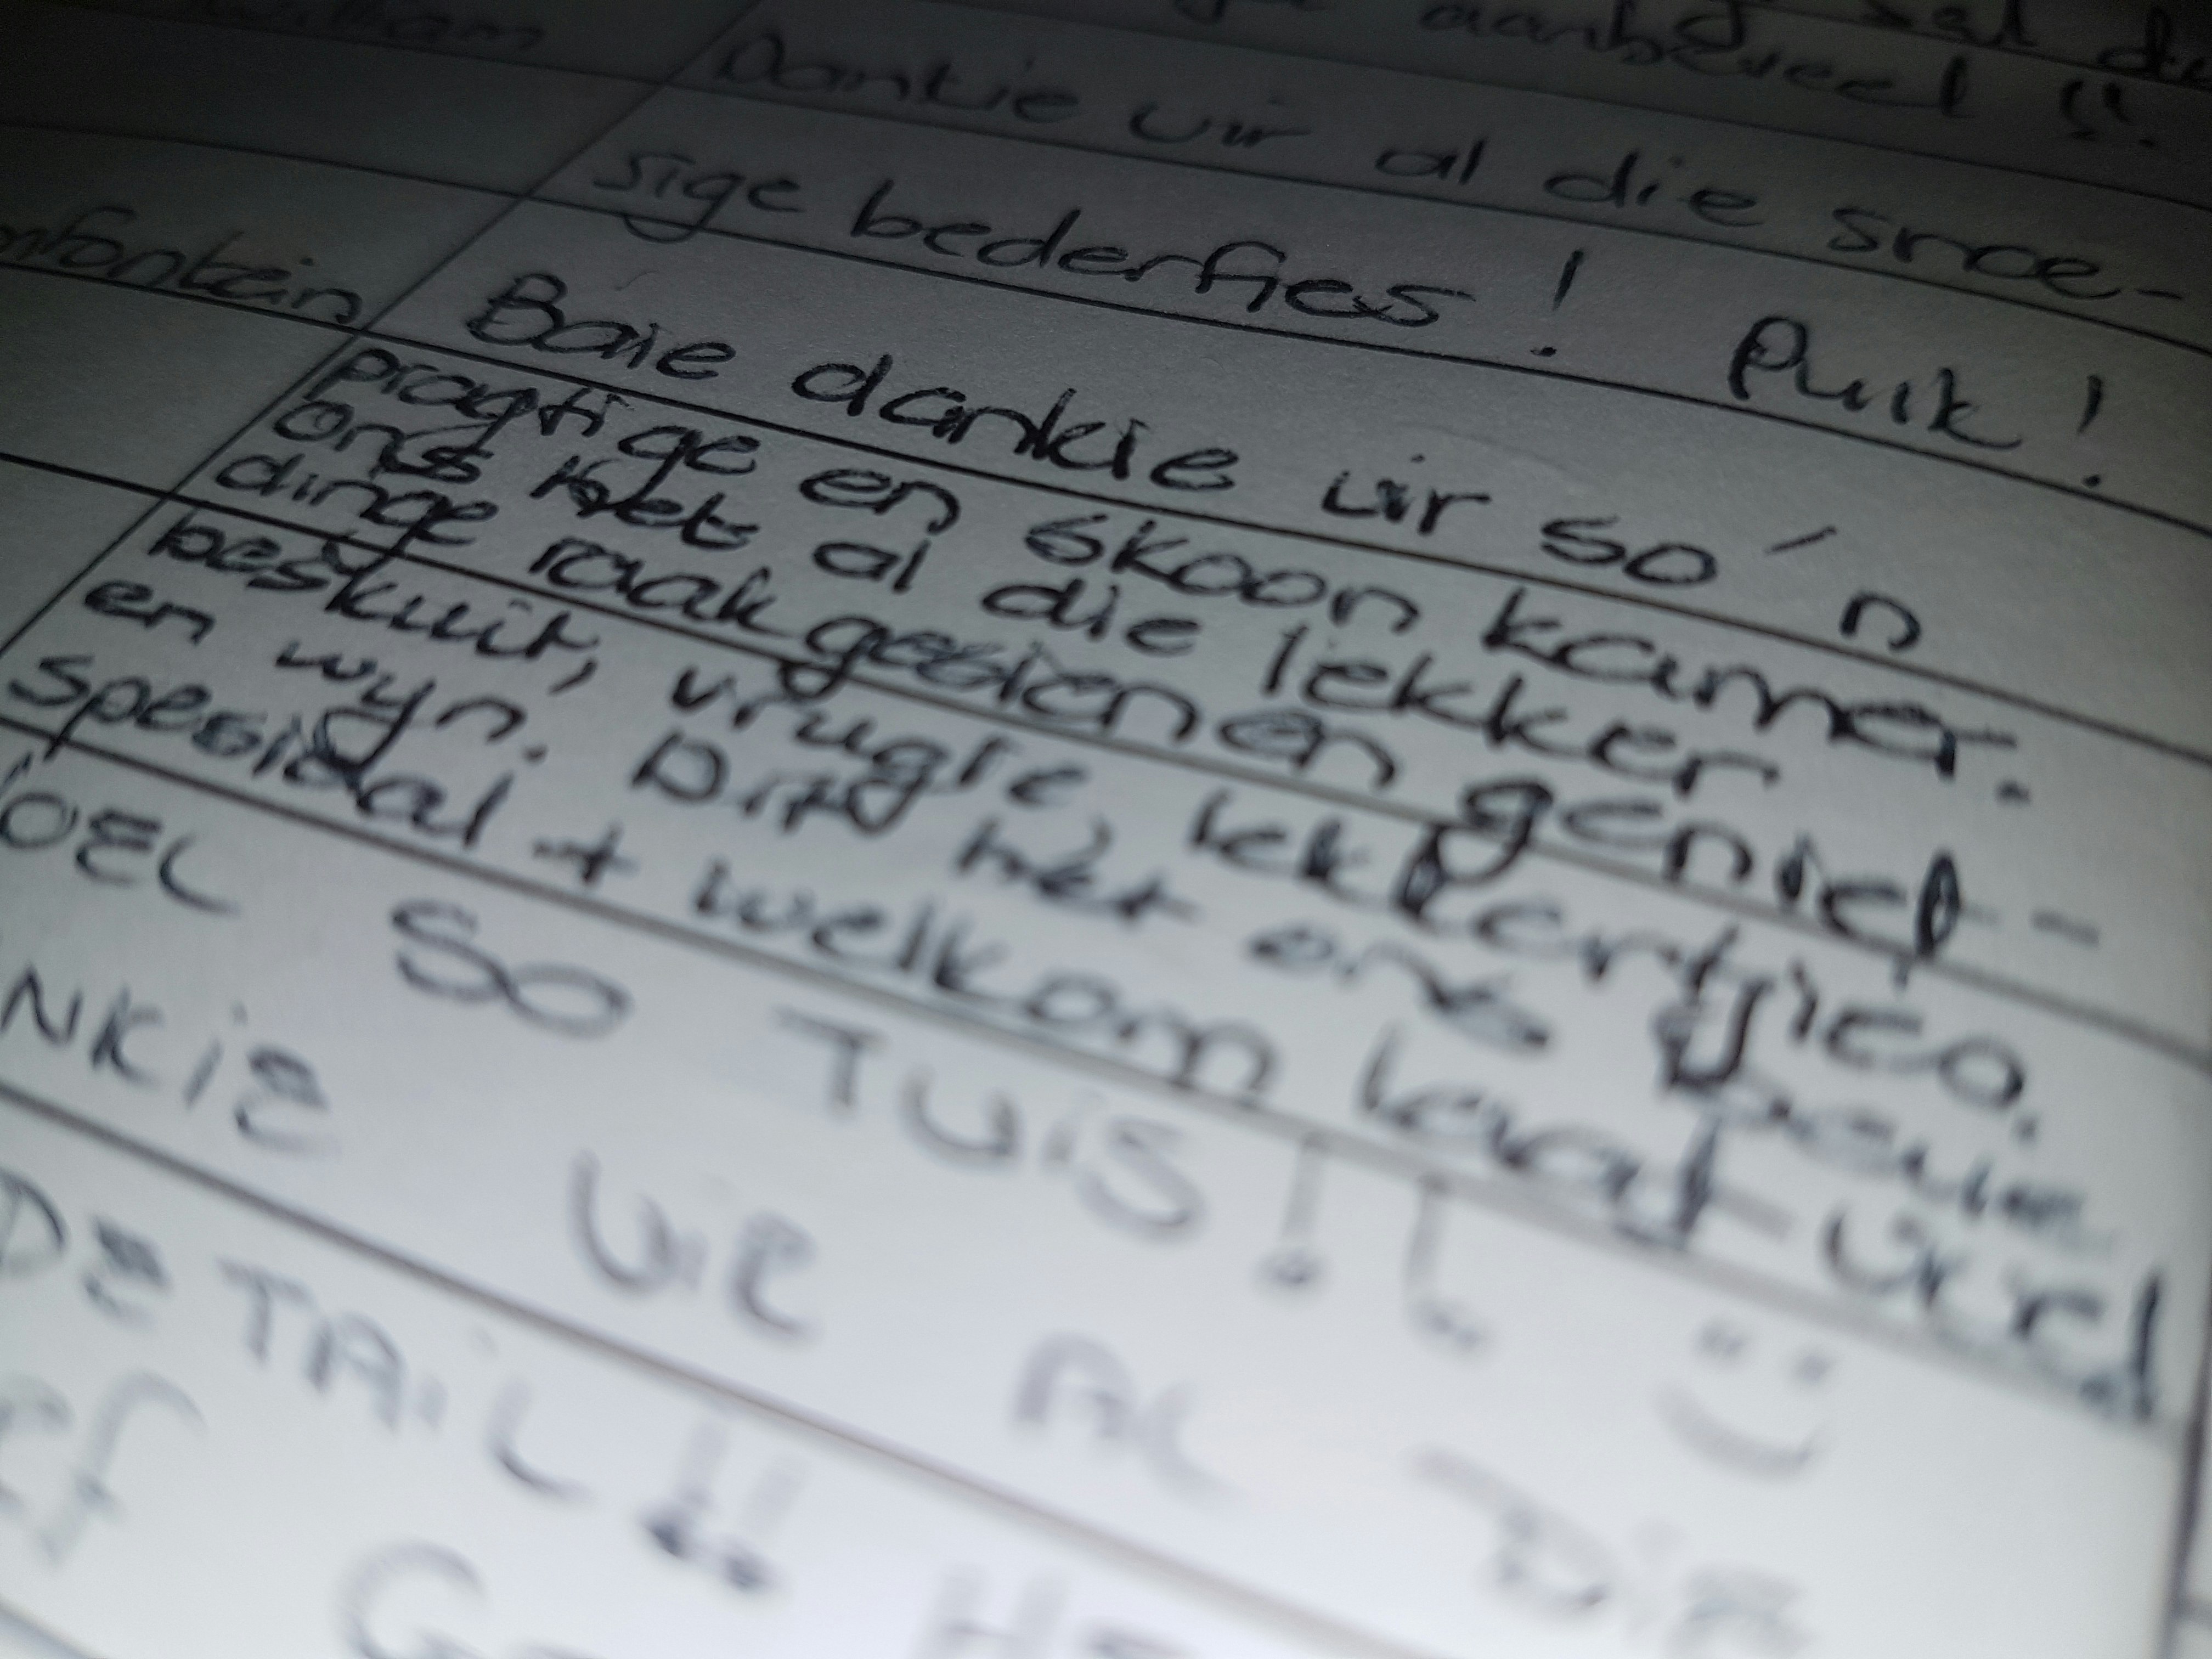 aanbeveel !!
Dankie vir al die snoe-
sige bederfies! Puik!
nfontein Baie dankie vir so 'n
pragtige en skoon kamer.
ons het al die lekker
dinge raakgesien en geniet -
beskuit, vrugte, lekkertjies,
en wyn. Dit het ons baie
spesiaal + welkom laat
OEL SO TUIS!! :)
NKIE VIR AL DIE
DETAIL!!